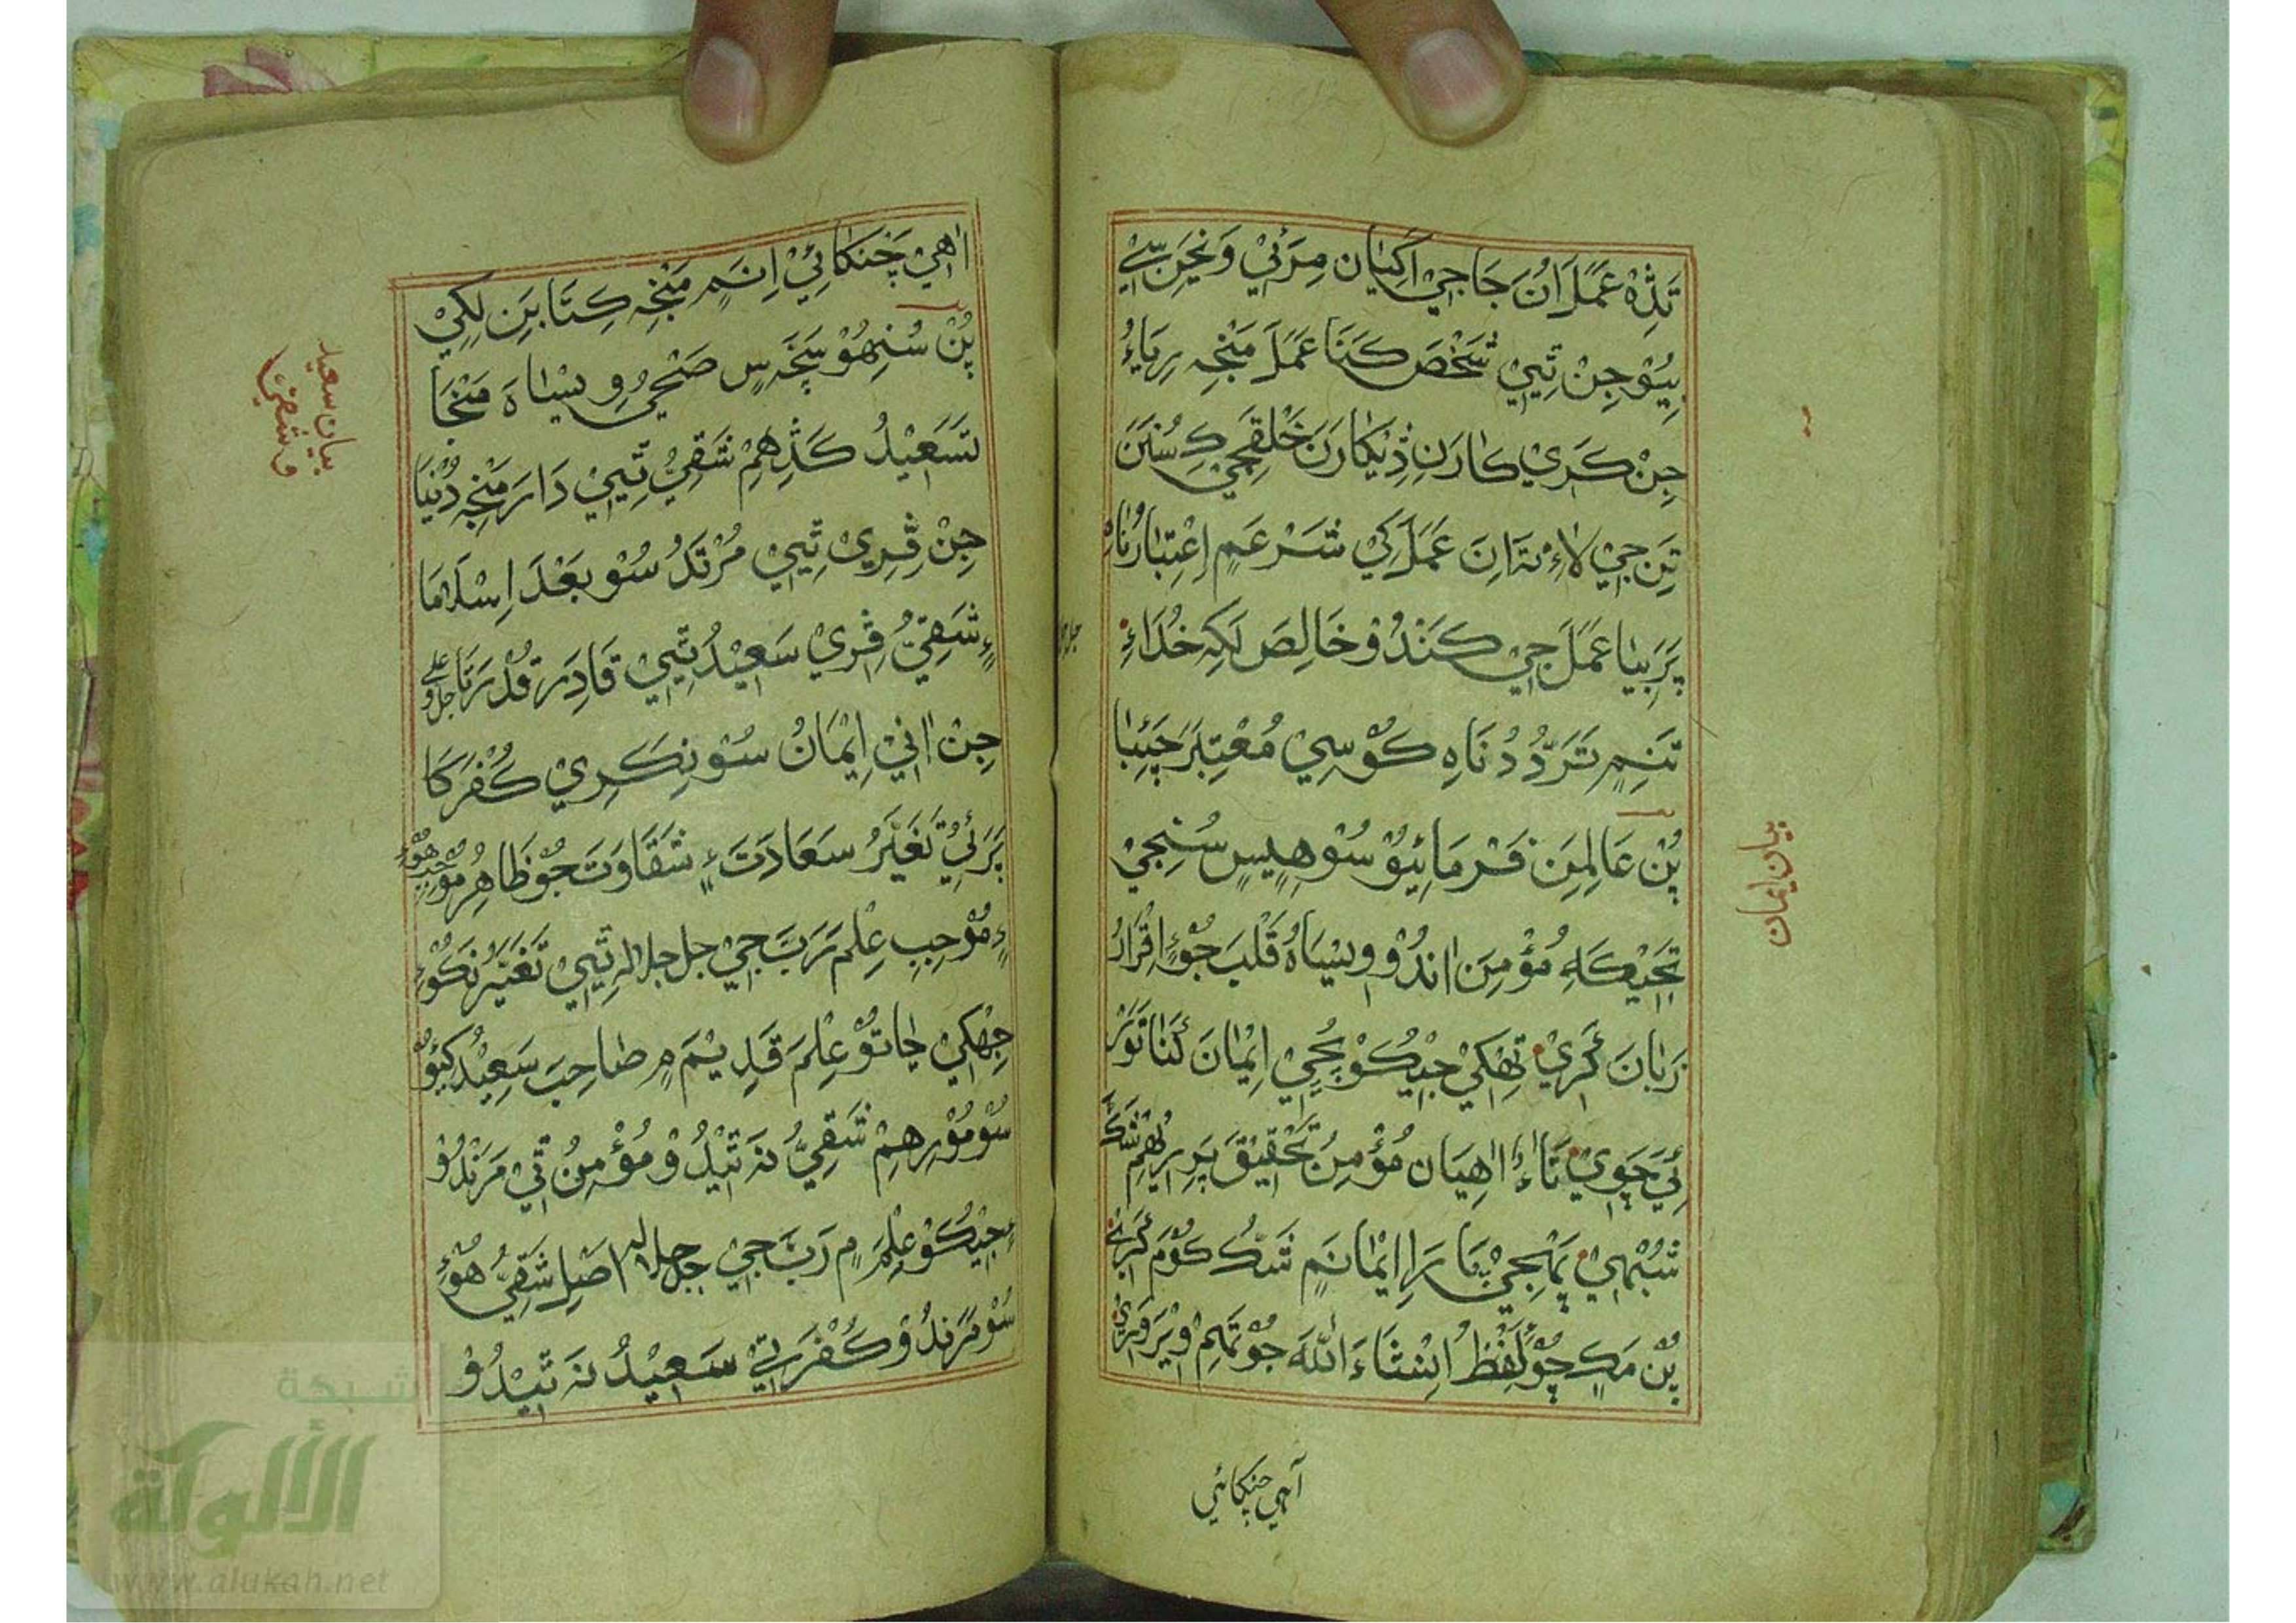 تَڎِهْ عَمَلَ اُنَ جَاجِيْ اَڳِيَان مِرَئِيْ وَنِحَرنِ سٖي
بِيُوْ جِنْ تِيٖيْ شَخْصَ كَنَا عَمَلَ مَنْجِہ رِيَاءُ
جِنْ كَرِيْ كَارَنِ ڎِيْكَارَنَ خَلْقَجِيْ كِ سُنَنَ
تَنِ جِيْ لَاءِ نَہ اَنِ عَمَلَ كِيْ شَرْعَمٖ اِعْتِبَارُ نَاهِ
پَرَ بِيَا عَمَلَ جِيْ كَنْدُوْ خَالِصَ لَكِہ خُدَاءِ
تَنِمٖ تَرَدُّدُ نَاہِ كُوْ سٖيْ مُعْتِبَرَ چَئِبَا
پُنْ عَالِمِنِ فَرْمَائِيُوْ سُوْ هِيٖسٖ سُنِجِيْ
تَحْقِيْكَہِ مُؤْمِنَ اٰندُوْ وِيْسَاهُ قَلْبَ جُوْءٖ اِقْرَارُ
زِبَانَ ڪَرِيْ تِهْكِيْ جِيْكُوْ پُڇِيْ اِيْمَانَ كَنَا تُوْرْ
ئِيْ چَوِيْ تَاءٖ اٰهِيَان مُؤْمِنُ تَحْقِيْقَ پَرِ رٖرِهِمْ شَكَّ
شُبْهِيْ پُهْجِيْ مَارَا اِيْمَانَمٖ شَكُّ كُوْمَ ڪَرِيٖ
پُنْ مَكِ چُوْ لَفْظُ اِنْشَاءَ اللّٰهَ جُوْ تَهِمْ اوِيْرَ وَرِيْ
آہي چنكائي
بيان ايمان
اٰهِيْ چَنْكَائِيْ اِنَمٖ مَنْجِہ كِتَابَنِ لِكِيْ
پُنْ سُنِهُوْ سَخَسٖ صَحِيْ ڪِرِ وِيْسَاهَ مَنْجَا
تَسَعِيْدُ كَڎِهِمْ شَقِيُّ تِيٖيْ دَارَ مَنْجِہ دُنْيَا
جِنْ ڦِرِيْ تِيٖيْ مُرْتَدُ سُوْ بَعْدَ اِسْلَامَا
ءٖ شَقِيُّ ڦِرِيْ سَعِيْدُ تِيٖيْ قَادِرَ قُدْرَتَا جل وعلى
جِنْ اٰنِيْ اِيْمَانُ سُوْ نِكَرِيْ كُفْرَكَا
پَرَئِيْ تَغَيُّرُ سَعَادَتَ ءٖ شَقَاوَتَ جُوْ ظَاهِرُ مُوْجِبِ هُوْءِ
ءٖ مُوْجِبِ عِلْمَ رَبَّ جِيْ جل جلاله تِيٖيْ تَغَيُّرُ نَكُوْءِ
جِهْكِيْ جَاتُوْ عِلْمَ قَدِيْمَ مٖ صَاحِبَ سَعِيْدُ كِيُوْ
سُوْ مُوْرِهِمْ شَقِيُّ نَہ تِيْدُوْ مُؤْمِنُ تِيْ مَرَنْدُوْ
ءٖ جِيْكُوْ عِلْمَ مٖ رَبَّ جِيْ جل جلاله اَصْلِ شَقِيُّ هُوْءِ
سُوْ مَرَنْدُوْ كُفْرَ تِيْ سَعِيْدُ نَہ تِيْدُوْ
بيان سعيد
و شقي
شبكة
الألوكة
www.alukah.net